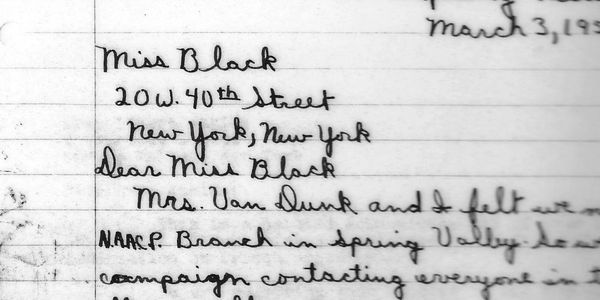 March 3, 195
Miss Black
20 W. 40th Street
New York, New York
Dear Miss Black
Mrs. Van Dunk and I felt we
N.A.A.C.P. Branch in Spring Valley. So
campaign contacting everyone in